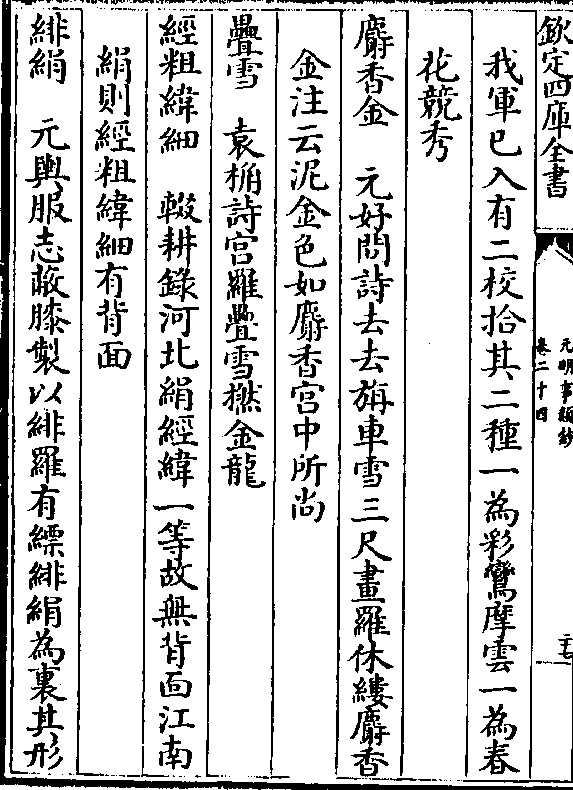 欽定四庫全書
元明事類鈔
卷二十四
二七
我軍已入有二校拾其二種一為彩鸞摩雲一為春
花競秀
麝香金　元好問詩去去旃車雪三尺畫羅休縷麝香
金注云泥金色如麝香宮中所尚
疊雪　袁桷詩宫羅疊雪襟金龍
經粗緯細　輟耕錄河北絹經緯一等故無背面江南
絹則經粗緯細有背面
緋絹　元輿服志蔽膝製以緋羅有縹緋絹為裏其形